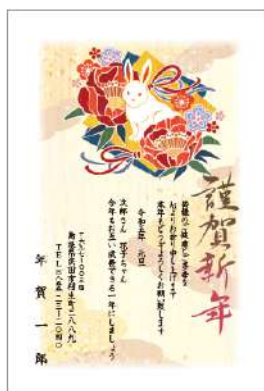 謹賀新年
皆様のご健康とご多幸を
心よりお祈り申し上げます
本年もどうぞよろしくお願い致します
令和五年 元旦
次郎さん 花子ちゃん
今年もお互い成長できる一年にしましょう
年賀 一郎